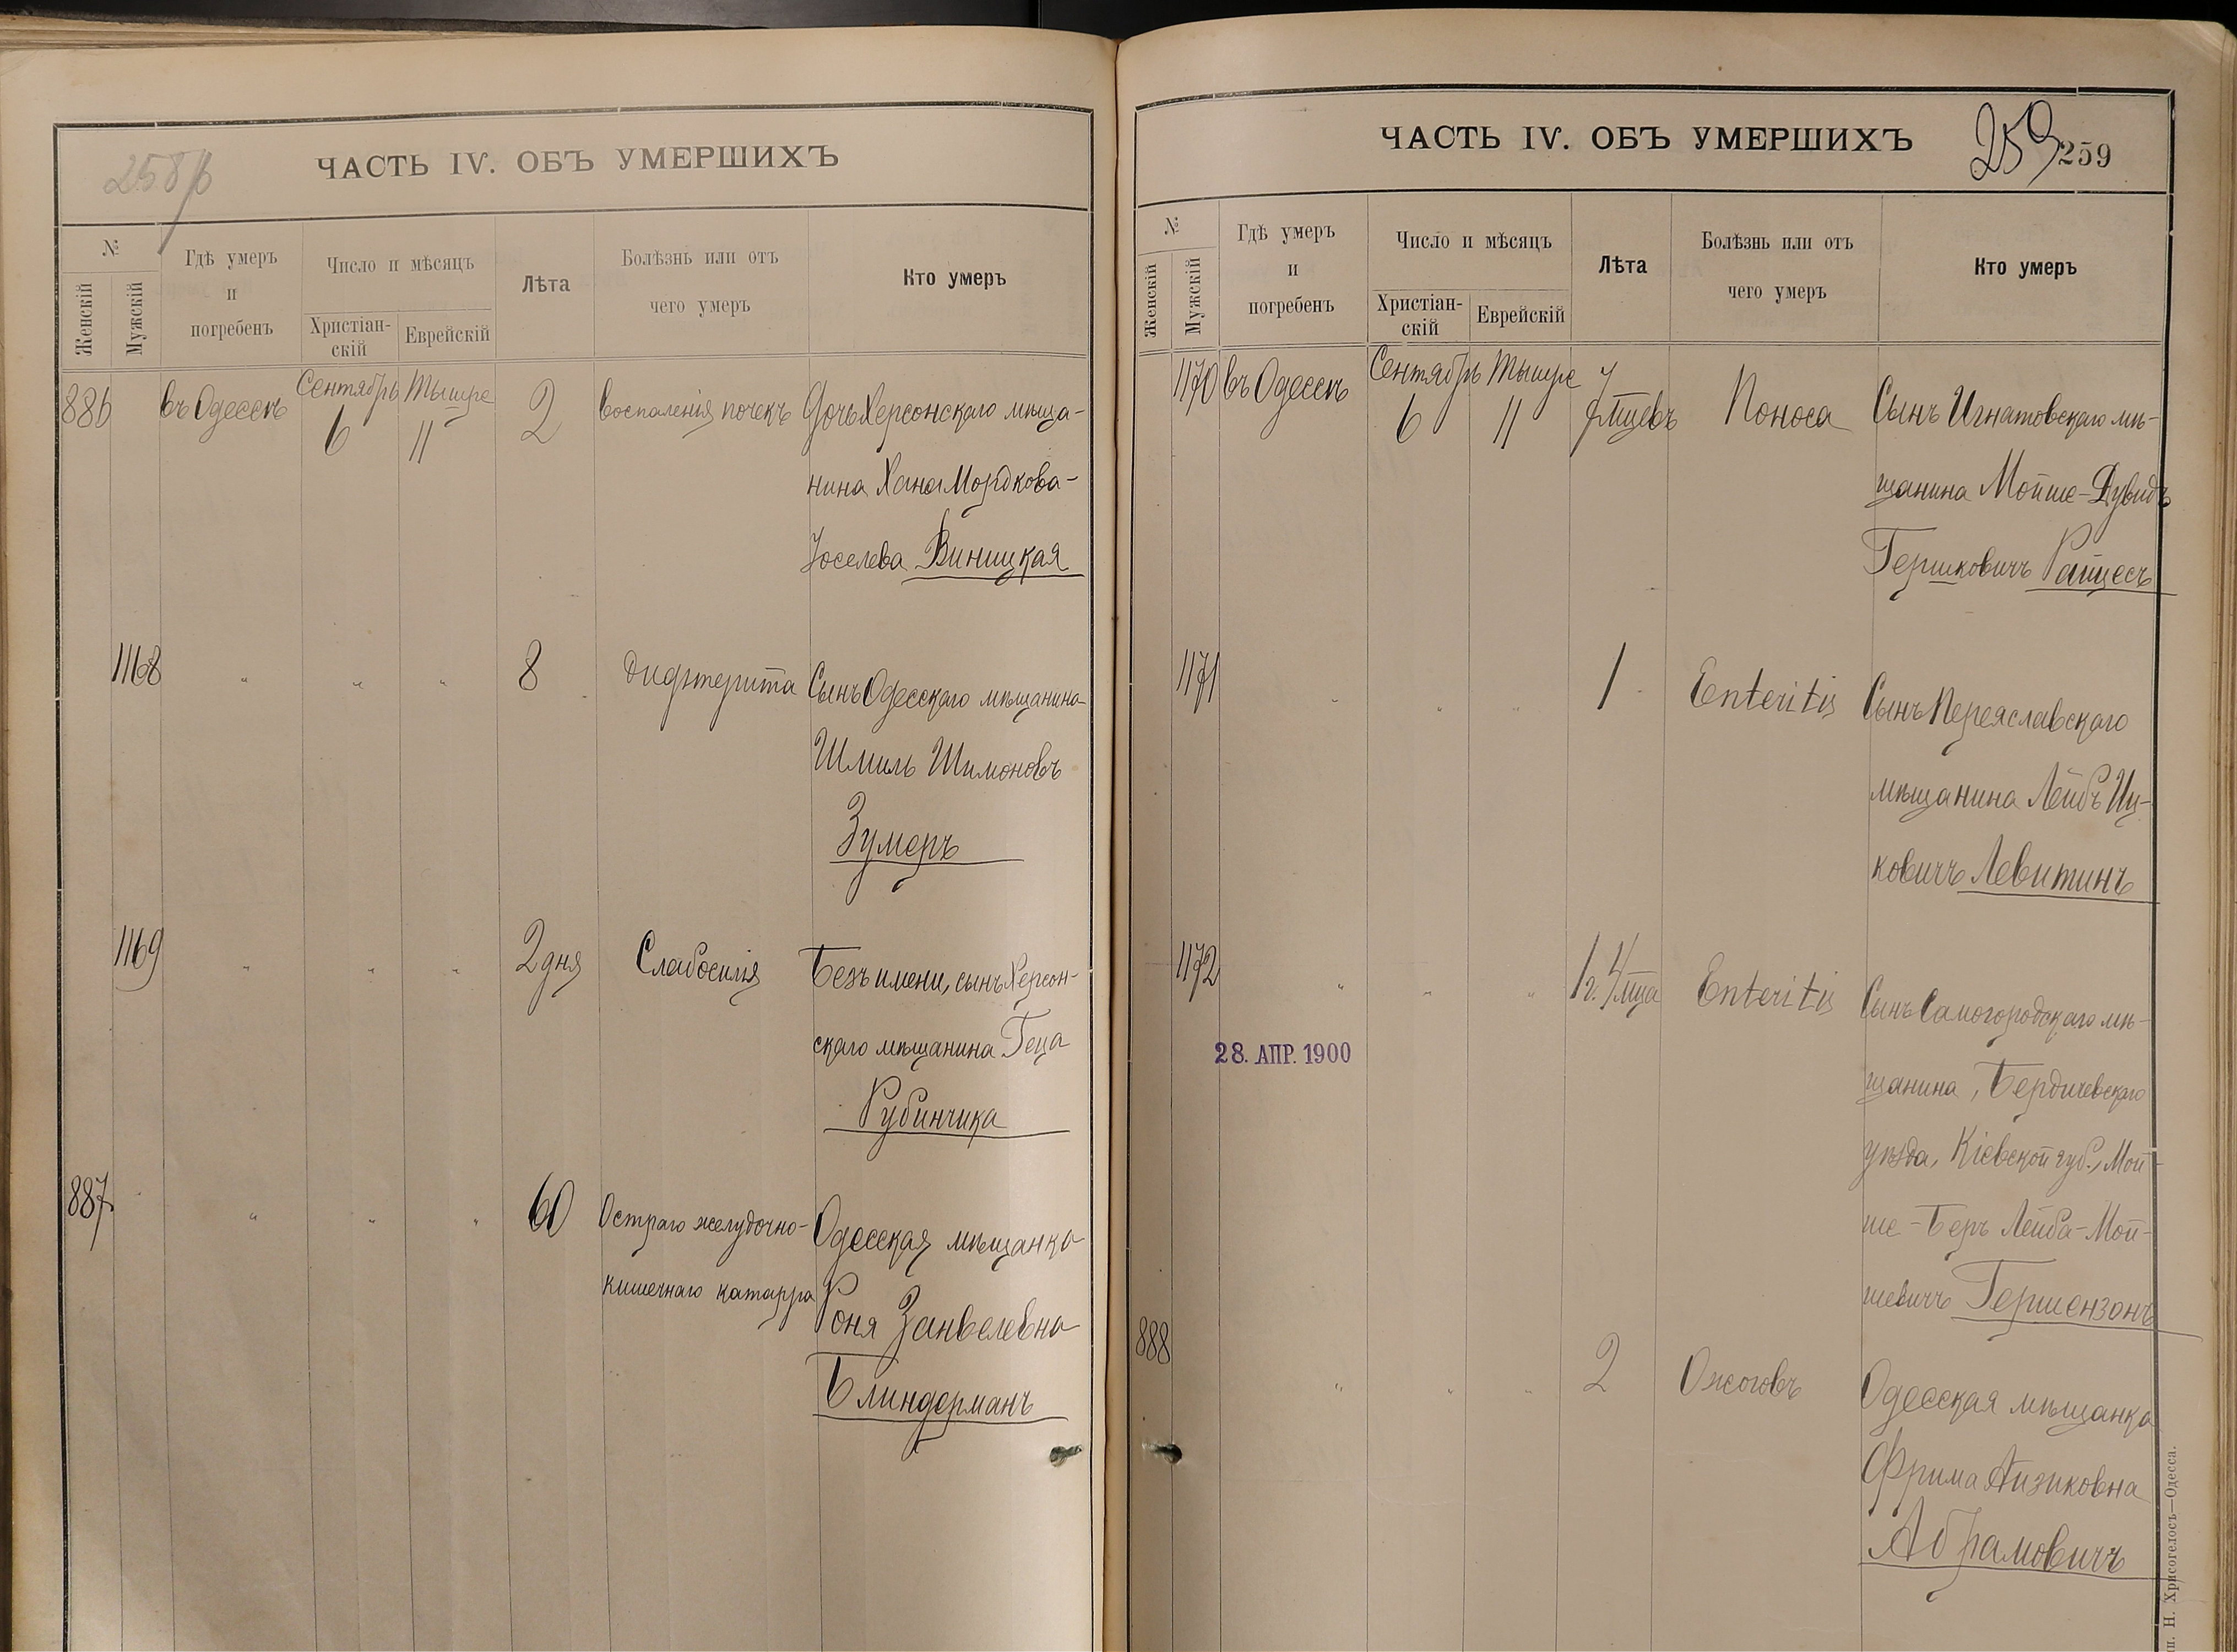 258/б
ЧАСТЬ IV. ОБЪ УМЕРШИХЪ
№
Женскій
Мужскій
Гдѣ умеръ
и
погребенъ
Число и мѣсяцъ
Христіан-
скій
Еврейскій
Лѣта
Болѣзнь или отъ
чего умеръ
Кто умеръ
886 въ Одессѣ Сентябрь 6 Тышре 11 2 Воспаленія почекъ Дочь Херсонскаго мѣща-
нина Хана Мордкова-
Іоселева Виницкая
1168 " " " 8 Дифтерита Сынъ Одесскаго мѣщанина
Шмиль Шимоновъ
Зумеръ
1169 " " " 2 дня Слабосилія Безъ имени, сынъ Херсон-
скаго мѣщанина Геца
Рубинчика
887 " " " 60 Остраго желудочно- Одесская мѣщанка
кишечнаго катарра Роня Занвелевна
Блиндерманъ
ЧАСТЬ IV. ОБЪ УМЕРШИХЪ
259
259
№
Женскій
Мужскій
Гдѣ умеръ
и
погребенъ
Число и мѣсяцъ
Христіан-
скій
Еврейскій
Лѣта
Болѣзнь или отъ
чего умеръ
Кто умеръ
1170 въ Одессѣ Сентябрь 6 Тышре 11 мцевъ Поноса Сынъ Игнатовскаго мѣ-
щанина Мойше-Дувидъ
Гершковичъ Райцесъ
1171 " " " 1 Enteritis Сынъ Переяславскаго
мѣщанина Лейбъ Иц-
ковичъ Левитинъ
1172 " " " 1 г. 4 мца Enteritis Сынъ Самогородскаго мѣ-
щанина, Бердичевскаго
уѣзда, Кіевской губ., Мой-
ше-Беръ Лейба-Мой-
шевичъ Гершензонъ
28. АПР. 1900
888 " " " 2 Ожоговъ Одесская мѣщанка
Фрима Айзиковна
Абрамовичъ
Н. Хрисогелосъ—Одесса.